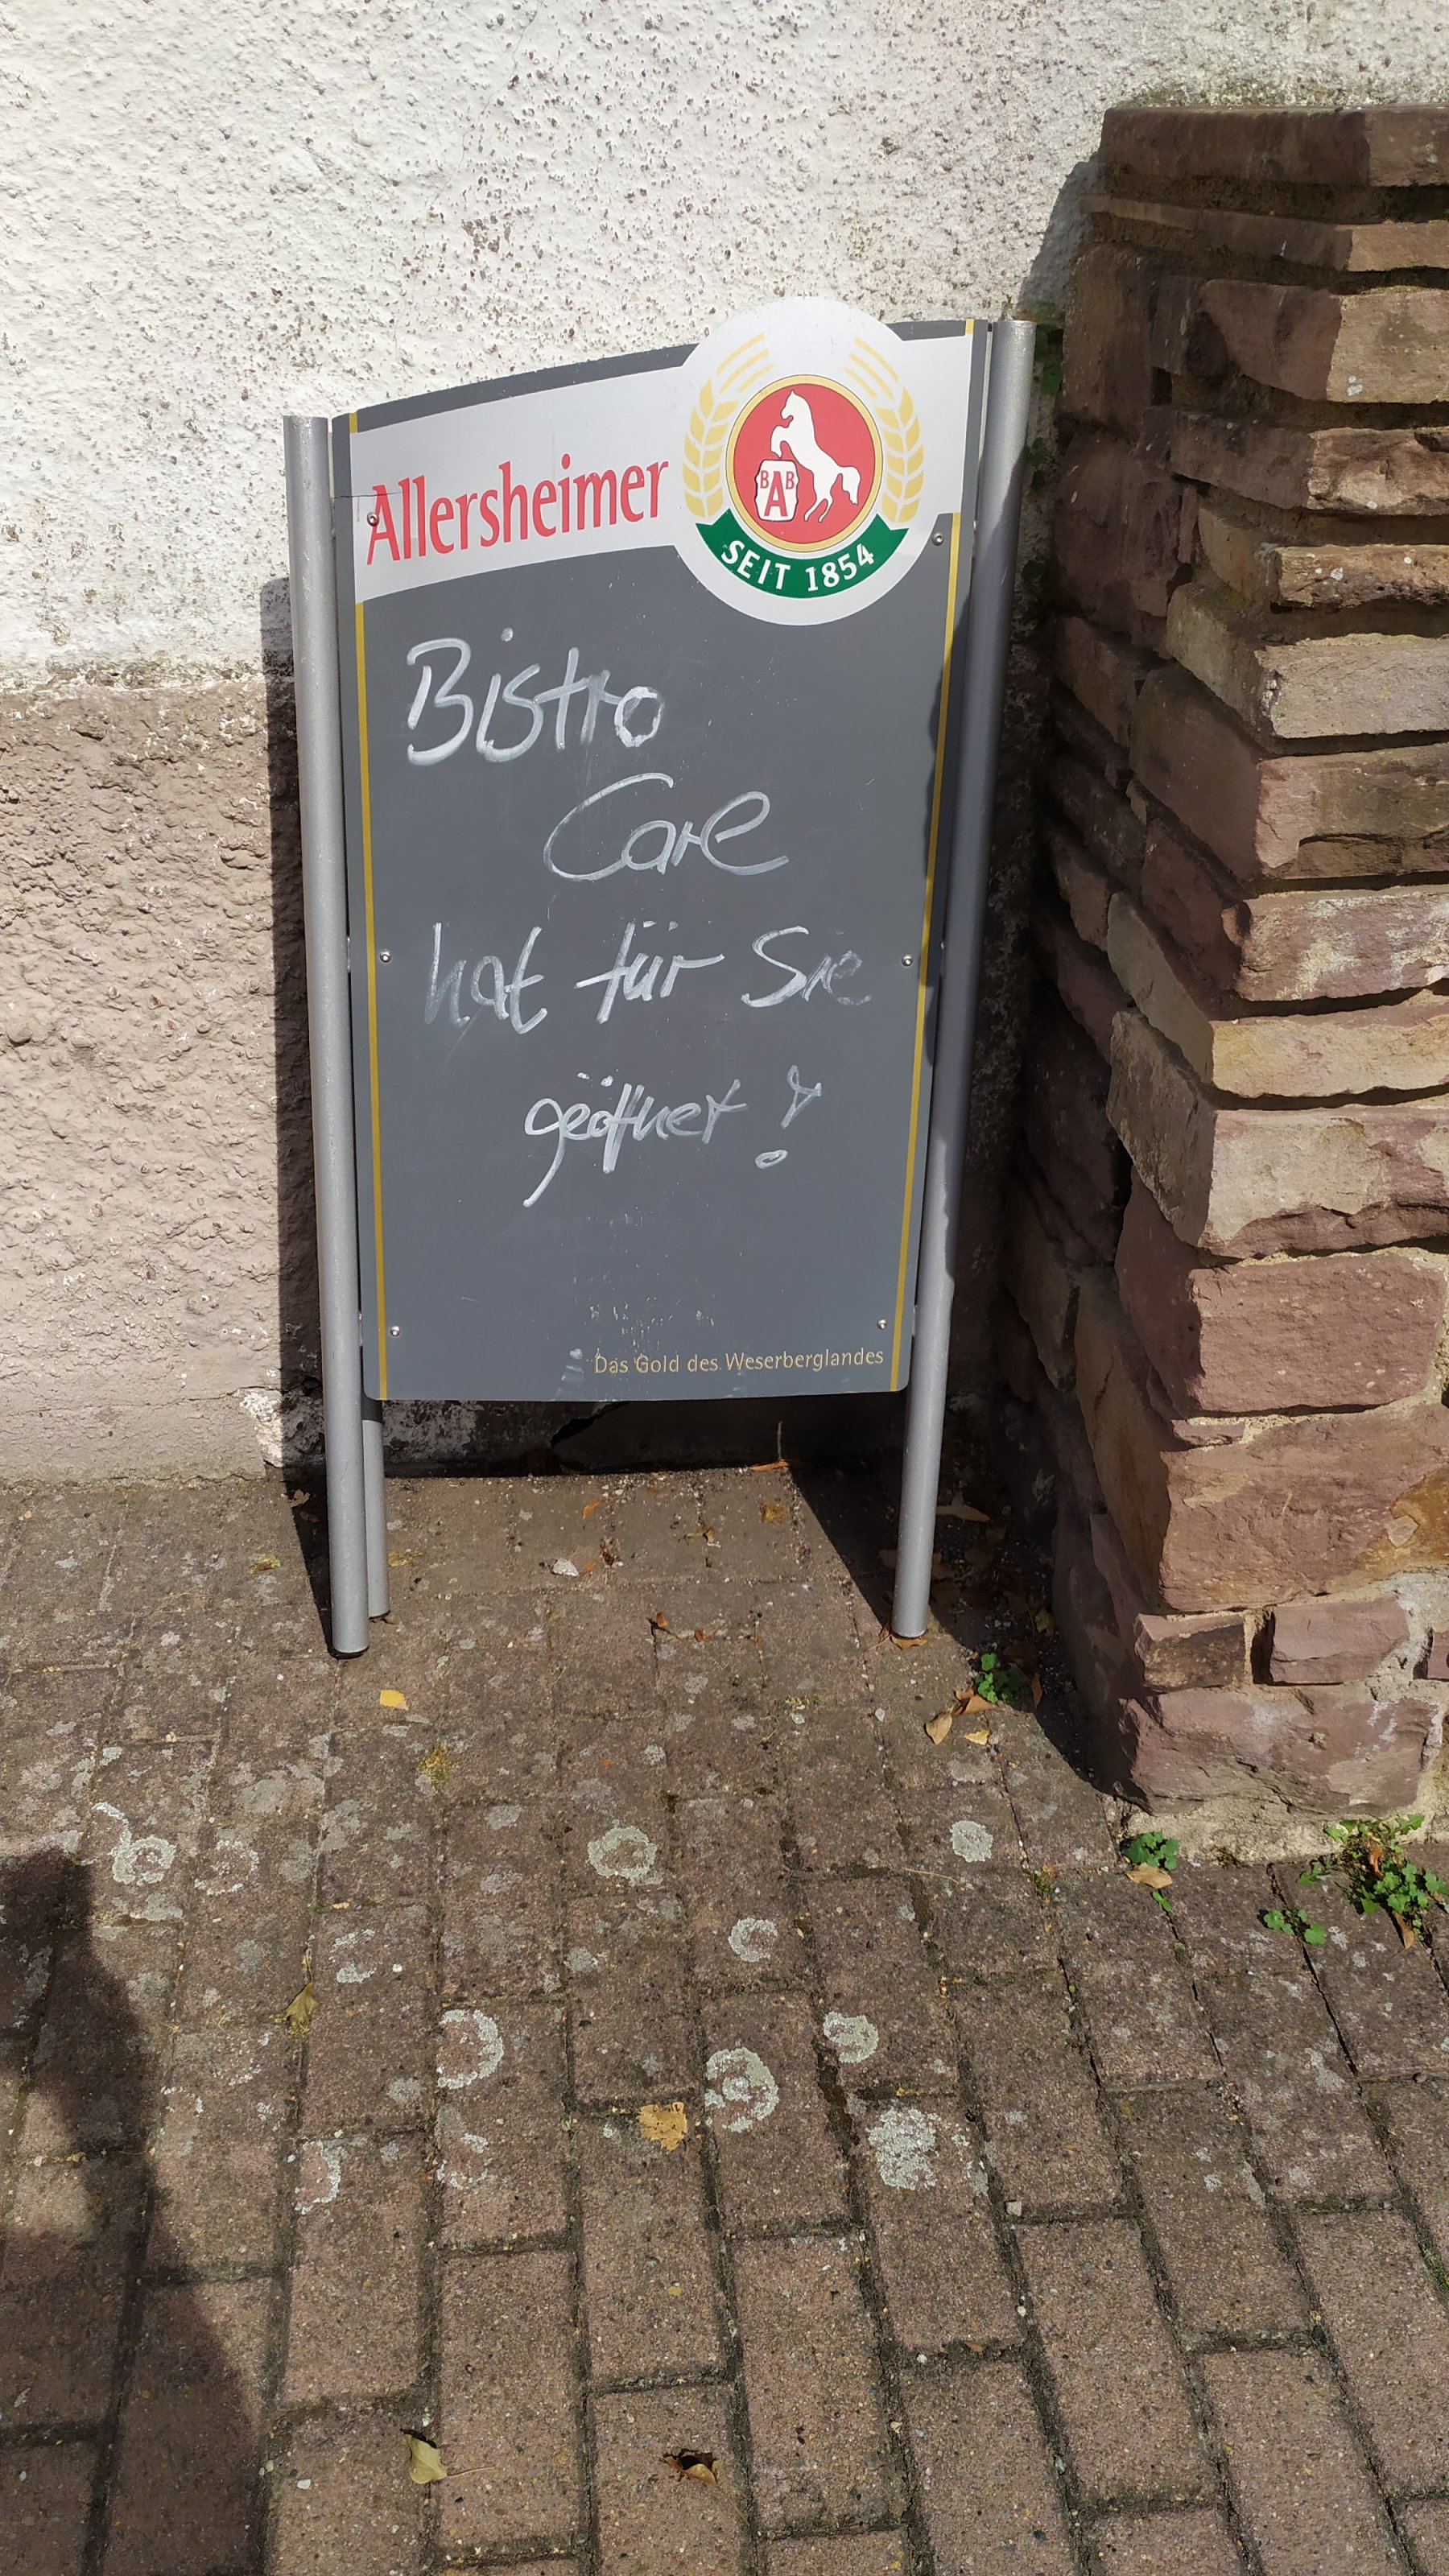 Allersheimer
BAB
SEIT 1854
Bistro
Care
hat für Sie
geöffnet!
Das Gold des Weserberglandes